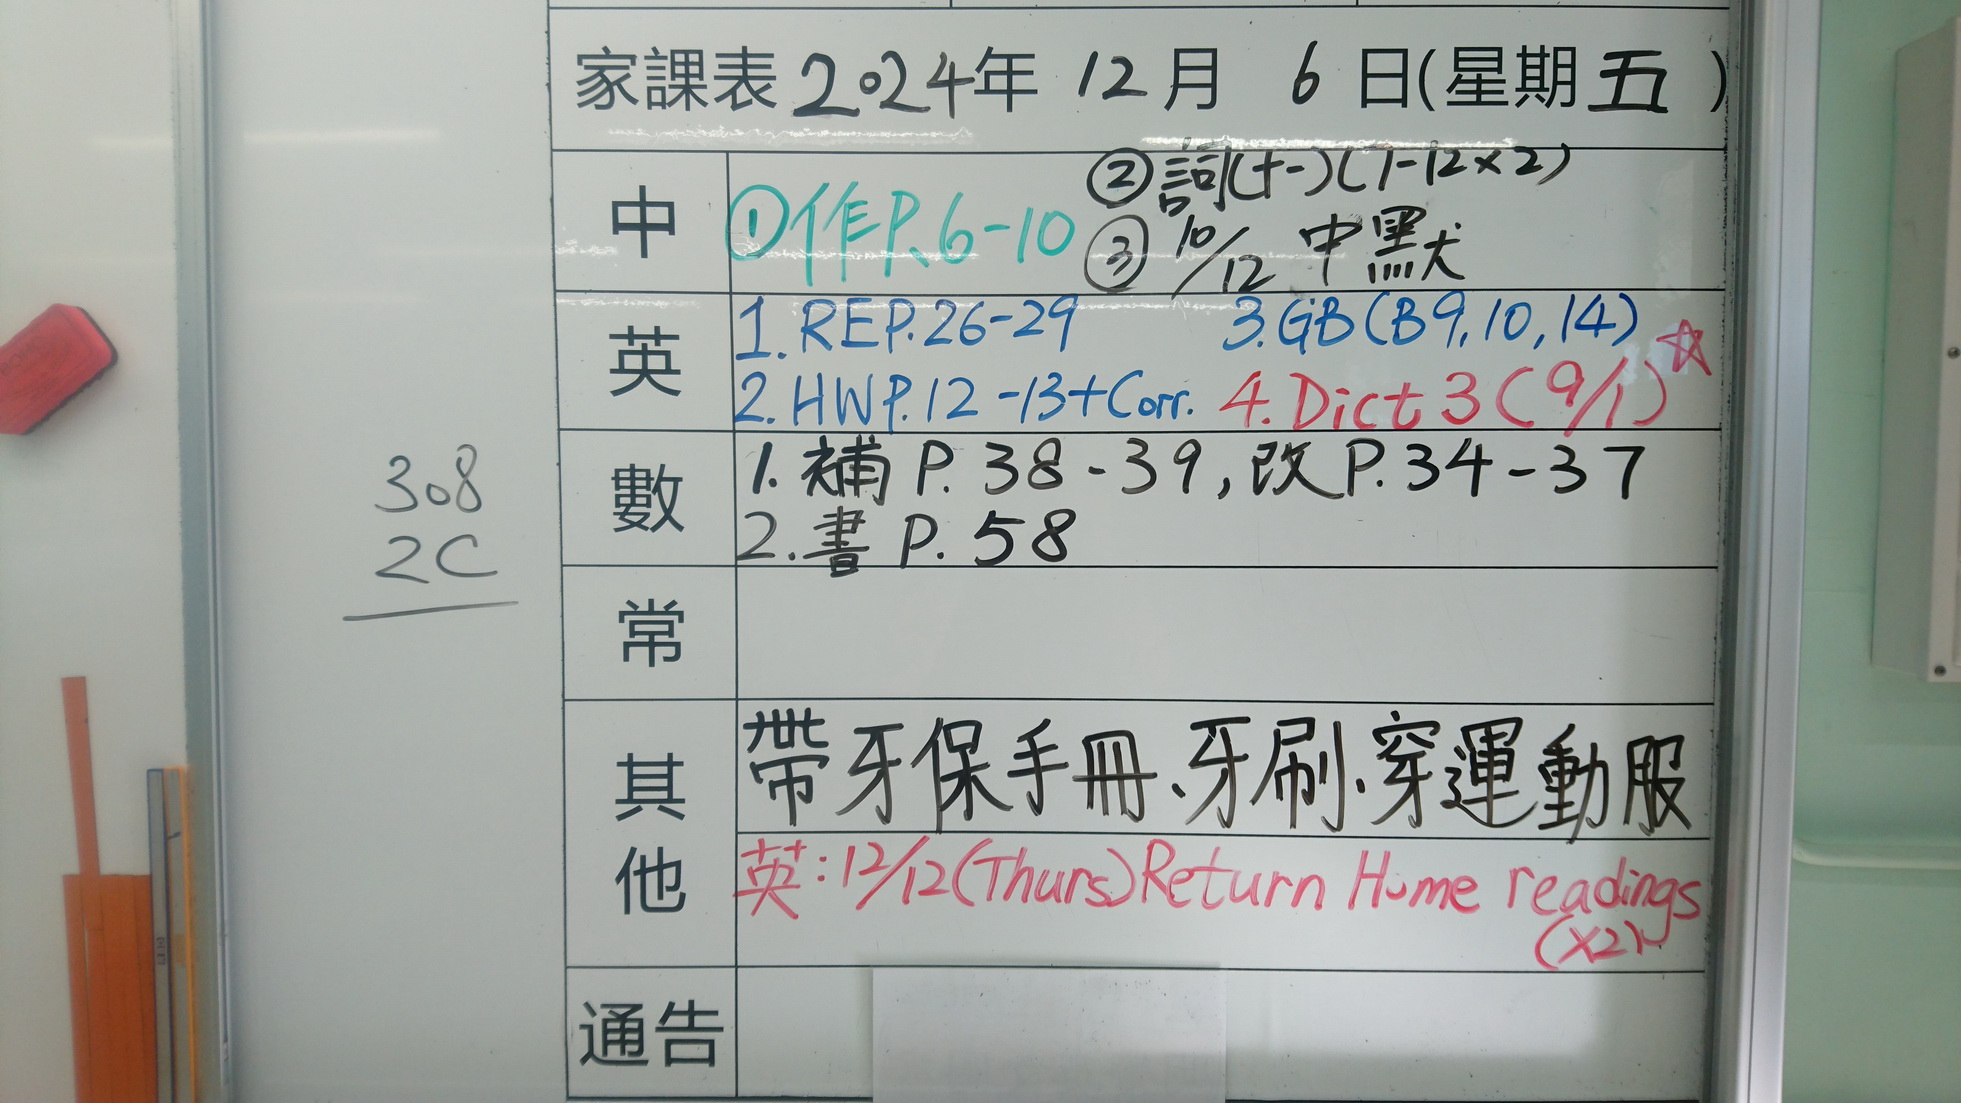 家課表 2024年 12月 6日(星期五)
中
①作P.6-10
②詞(十一)(1-12×2)
③10/12 中默
英
1. REP.26-29
2. HWP.12-13+Corr.
3. GB(B9,10,14)
4. Dict 3(9/1)☆
數
1. 補 P. 38-39, 改 P. 34-37
2. 書 P. 58
308
2C
常
其他
帶牙保手冊、牙刷、穿運動服
英:12/12(Thurs)Return Home readings
(×2)
通告